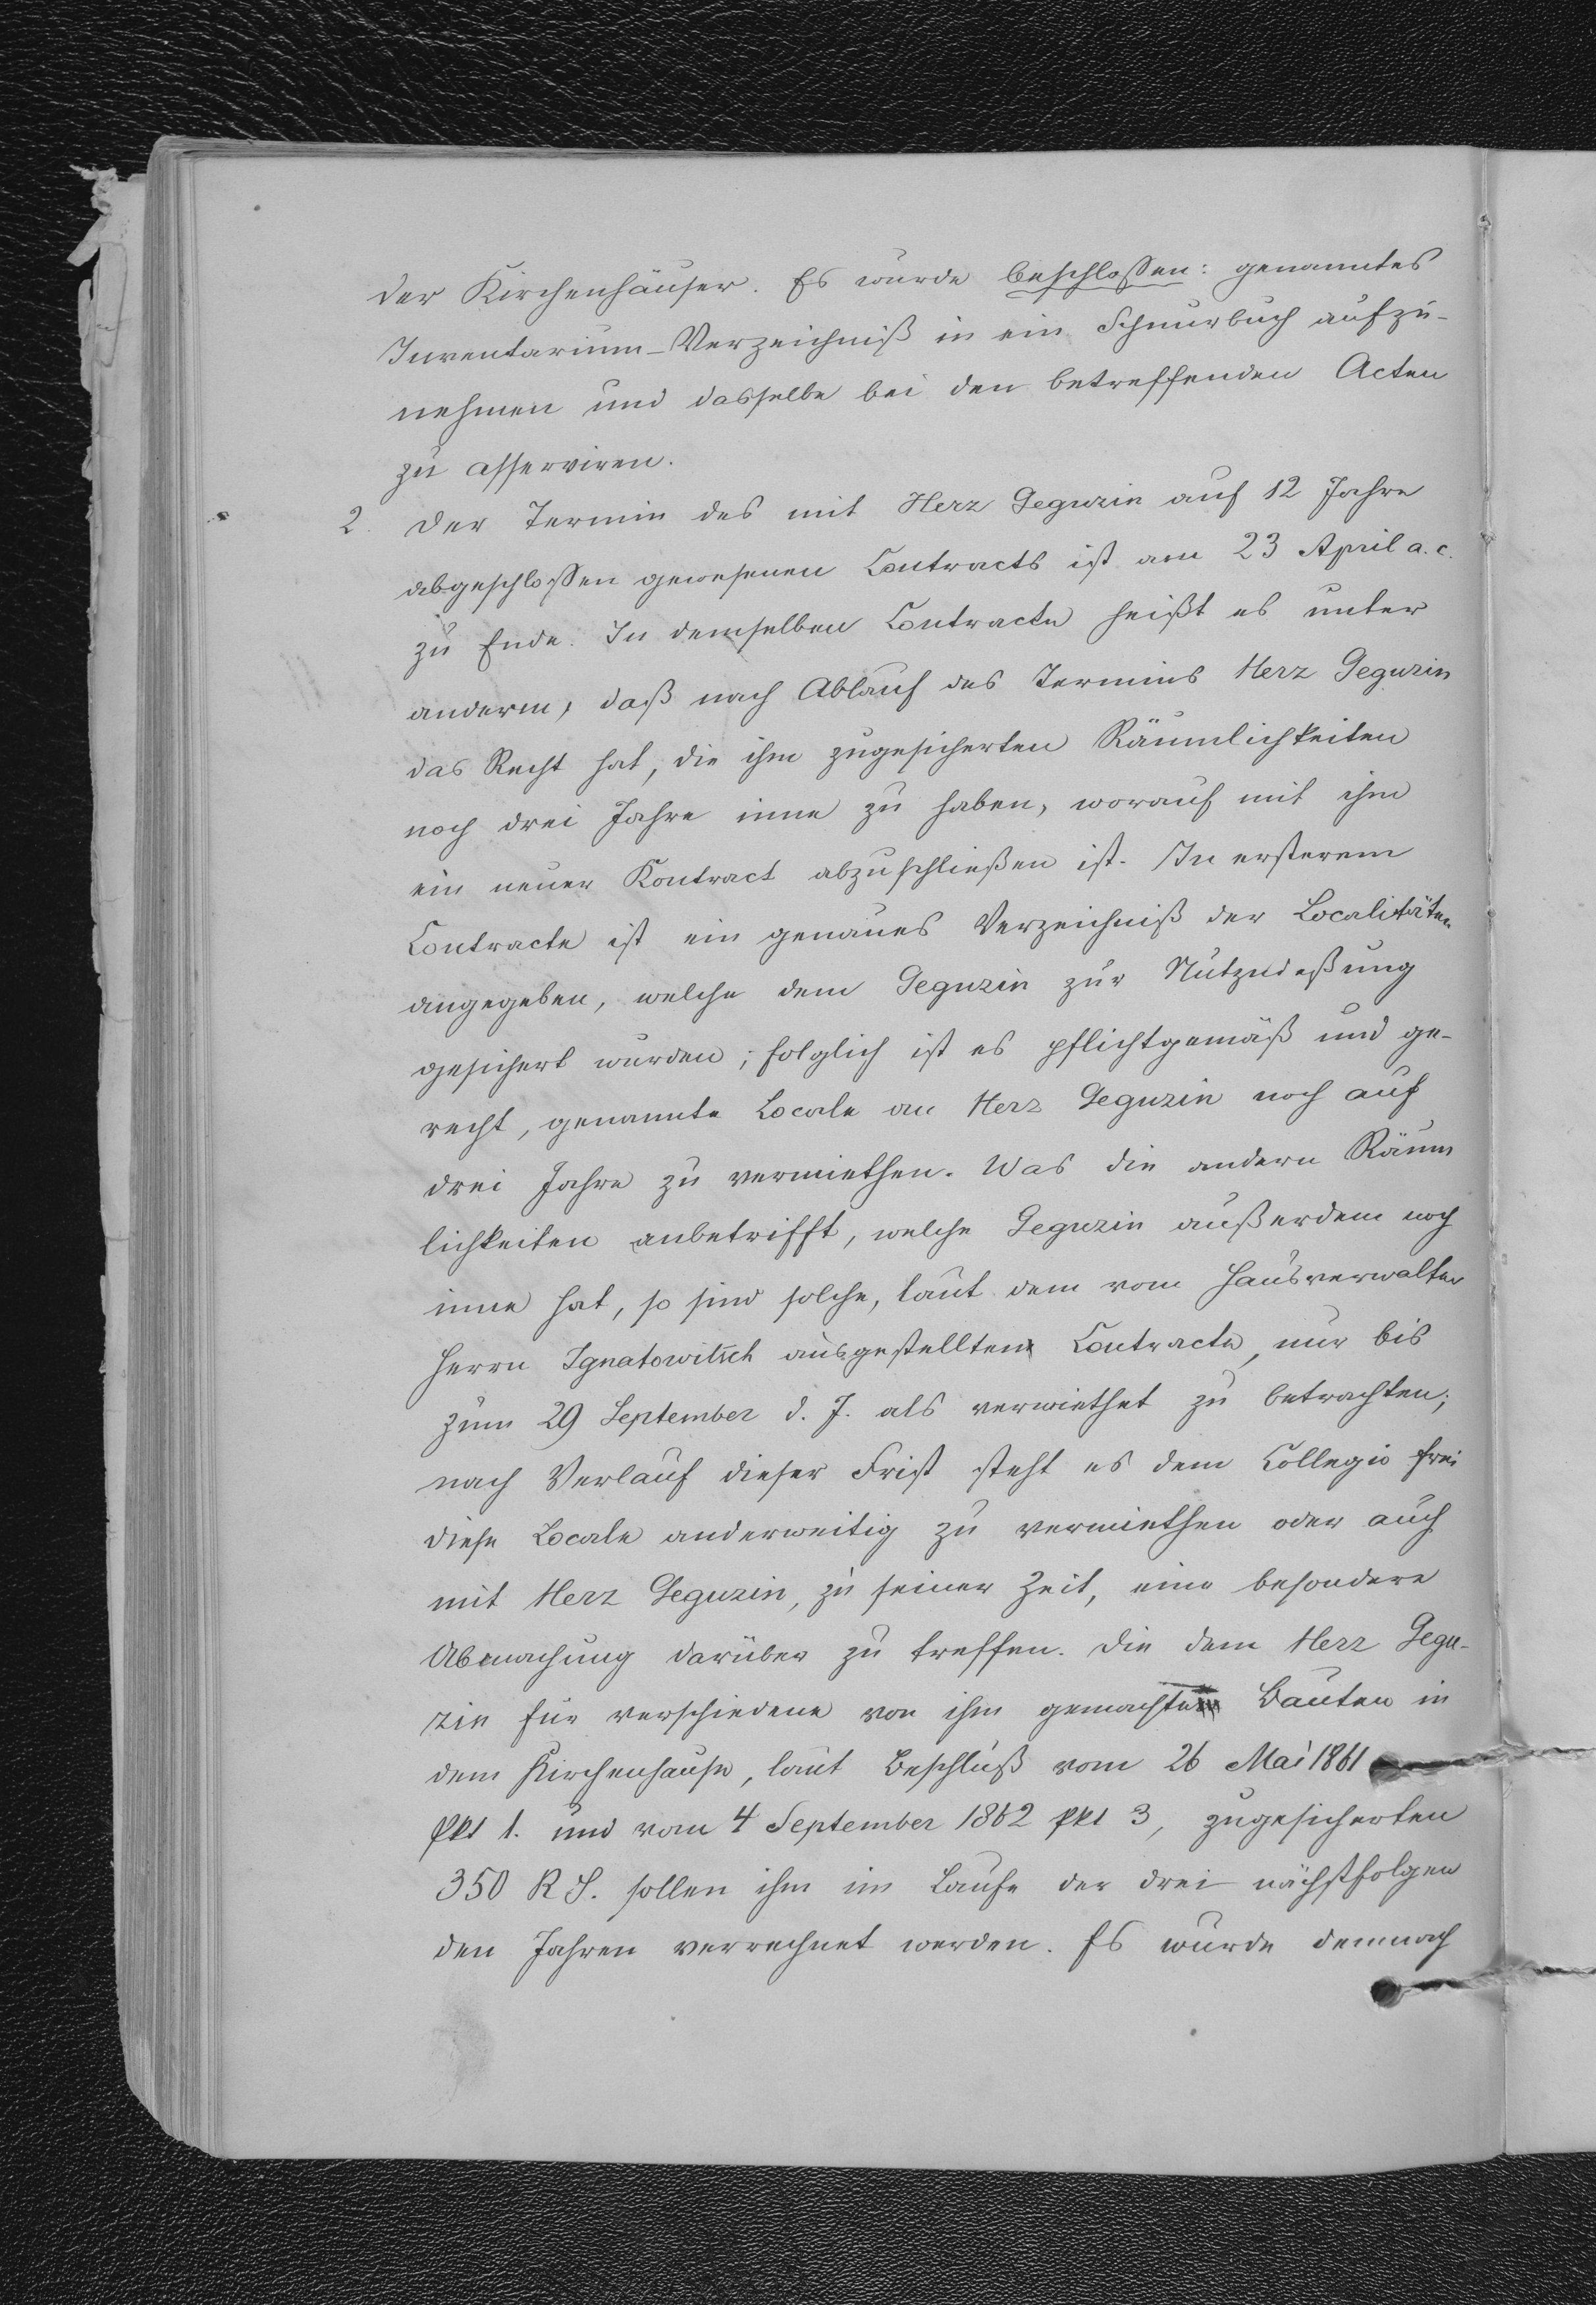 der Kirchenhäuser. Es wurde beschloßen: genanntes
Inventarium-Verzeichniß in ein Schnurbuch aufzu-
nehmen und dasselbe bei den betreffenden Acten
zu asserviren.
2. Der Termin des mit Herz Geguzin auf 12 Jahre
abgeschloßen gewesenen Contracts ist am 23 April a. c.
zu Ende. In demselben Contracte heißt es unter
anderm, daß nach Ablauf des Termins Herz Geguzin
das Recht hat, die ihm zugesicherten Räumlichkeiten
noch drei Jahre inne zu haben, worauf mit ihm
ein neuer Kontract abzuschließen ist. In ersterem
Contracte ist ein genaues Verzeichniß der Localitäten
angegeben, welche dem Geguzin zur
gesichert wurden; folglich ist es pflichtgemäß und ge-
recht, genannte Locale an Herz Geguzin noch auf
drei Jahre zu vermiethen. Was die andern Räum
lichkeiten anbetrifft, welche Geguzin außerdem noch
inne hat, so sind solche, laut dem vom Hausverwalter
Herrn Ignatowitsch ausgestellten Contracte, nur bis
zum 29 September d. J. als vermiethet zu betrachten;
nach Verlauf dieser Frist steht es dem Collegio frei
diese Locale anderweitig zu vermiethen oder auch
mit Herz Geguzin, zu seiner Zeit, eine besondere
Abmachung darüber zu treffen. Die dem Herz Gegu-
zin für verschiedene von ihm gemachte Bauten in
dem Kirchenhause, laut Beschluß vom 26 Mai 1861
Pkt 1. und vom 4 September 1862 pkt 3, zugesicherten
350 R S. sollen ihm im Laufe der drei nächstfolgen
den Jahren verrechnet werden. Es wurde demnach